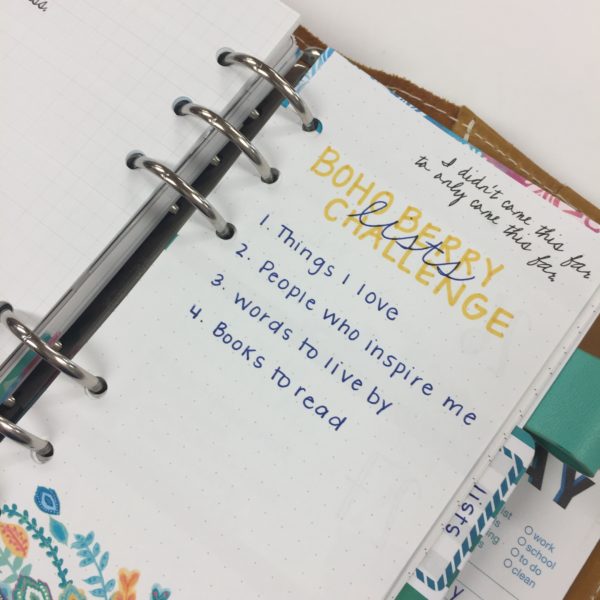 I didn't come this far
to only come this far
BOHO BERRY
lists
CHALLENGE
1. Things I love
2. People who inspire me
3. Words to live by
4. Books to read
lists
AY
work
school
to do
clean